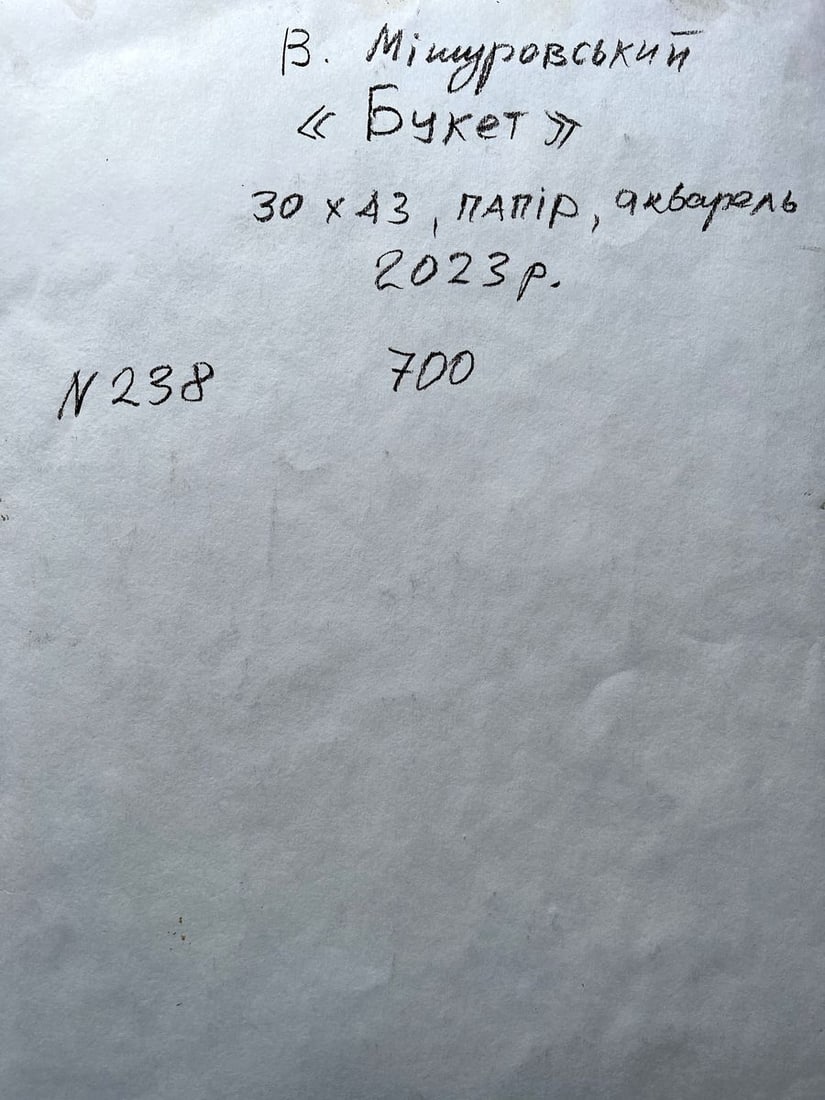 В. Мішуровський
« Букет »
30 х 43, ПАПІР, акварель
2023 р.
N 238 700